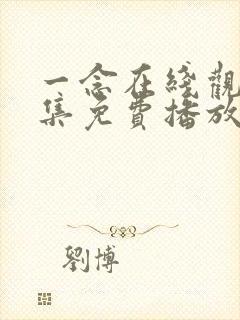 一念在綫觀
集免費播放
劉博